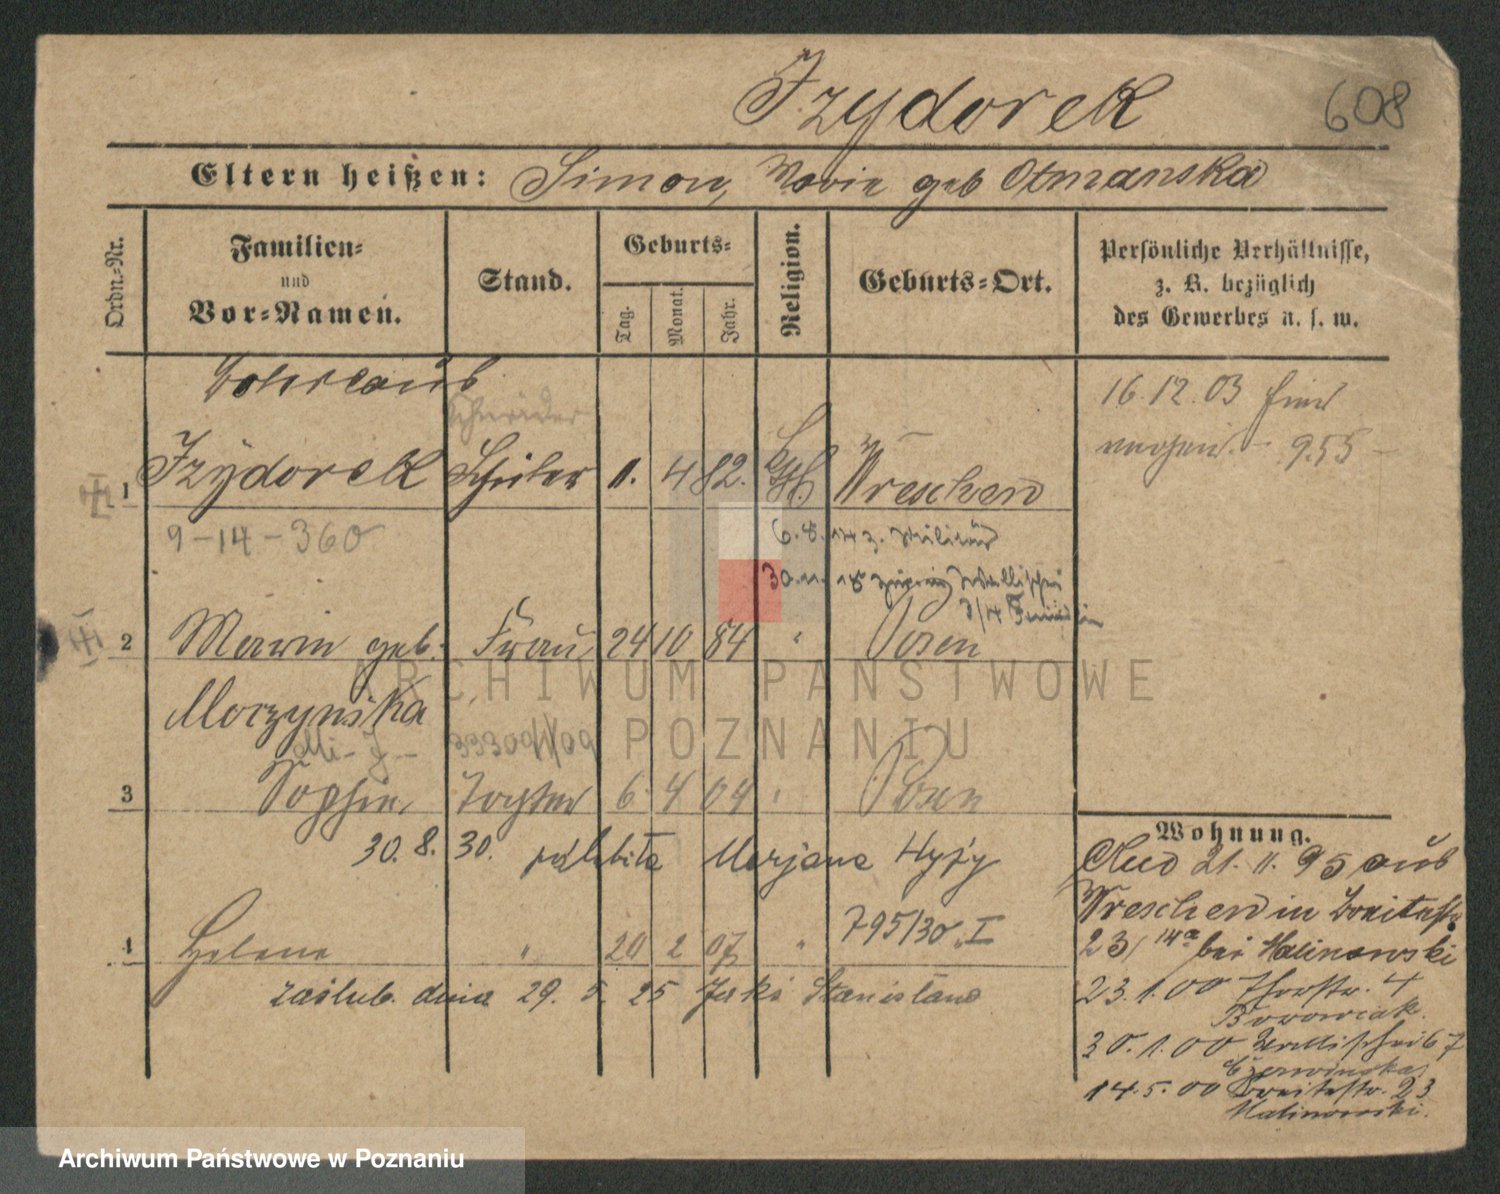 Izydorek
608
Eltern heißen: Simon, Marie geb Otmanska
Ordn.-Nr.
Familien- und Vor-Namen.
Stand.
Geburts-
Tag.
Monat.
Jahr.
Religion.
Geburts-Ort.
Persönliche Verhältnisse, z. B. bezüglich des Gewerbes u. s. w.
Schneider
16.12.03
955
1 Izydorek Schüler 11. 4 82. kath Wreschen
9-14-360
6.8.14 z. Militär
30.11.18 Wallischei
3/4
2 Marie geb. Frau 24 10 84 " Posen
Moczynska
3 Sophie Tochter 6 4 04 " Posen
30.8.30. poślubiła Marjana Hyży
795/30 I
4 Helene " 20 2 07 "
zaślub. dnia 29. 5. 25 Stanisław
Wohnung.
21.11.95 aus
Wreschen in Breitestr.
23/14a bei Malinowski
23.1.00 Thorstr. 4
Borowiak.
30.1.00 Wallischei 67
Czerwinska
14.5.00 Breitestr. 23
Malinowski.
ARCHIWUM PAŃSTWOWE
POZNANIU
Archiwum Państwowe w Poznaniu